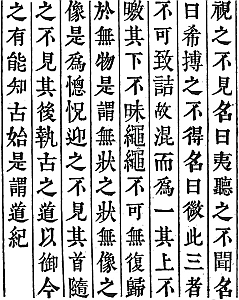 視之不見名曰夷聽之不聞名
曰希搏之不得名曰微此三者
不可致詰故混而爲一其上不
皦其下不昧繩繩不可無復歸
於無物是謂無狀之狀無像之
像是爲憁怳迎之不見其首隨
之不見其後執古之道以御今
之有能知古始是謂道紀